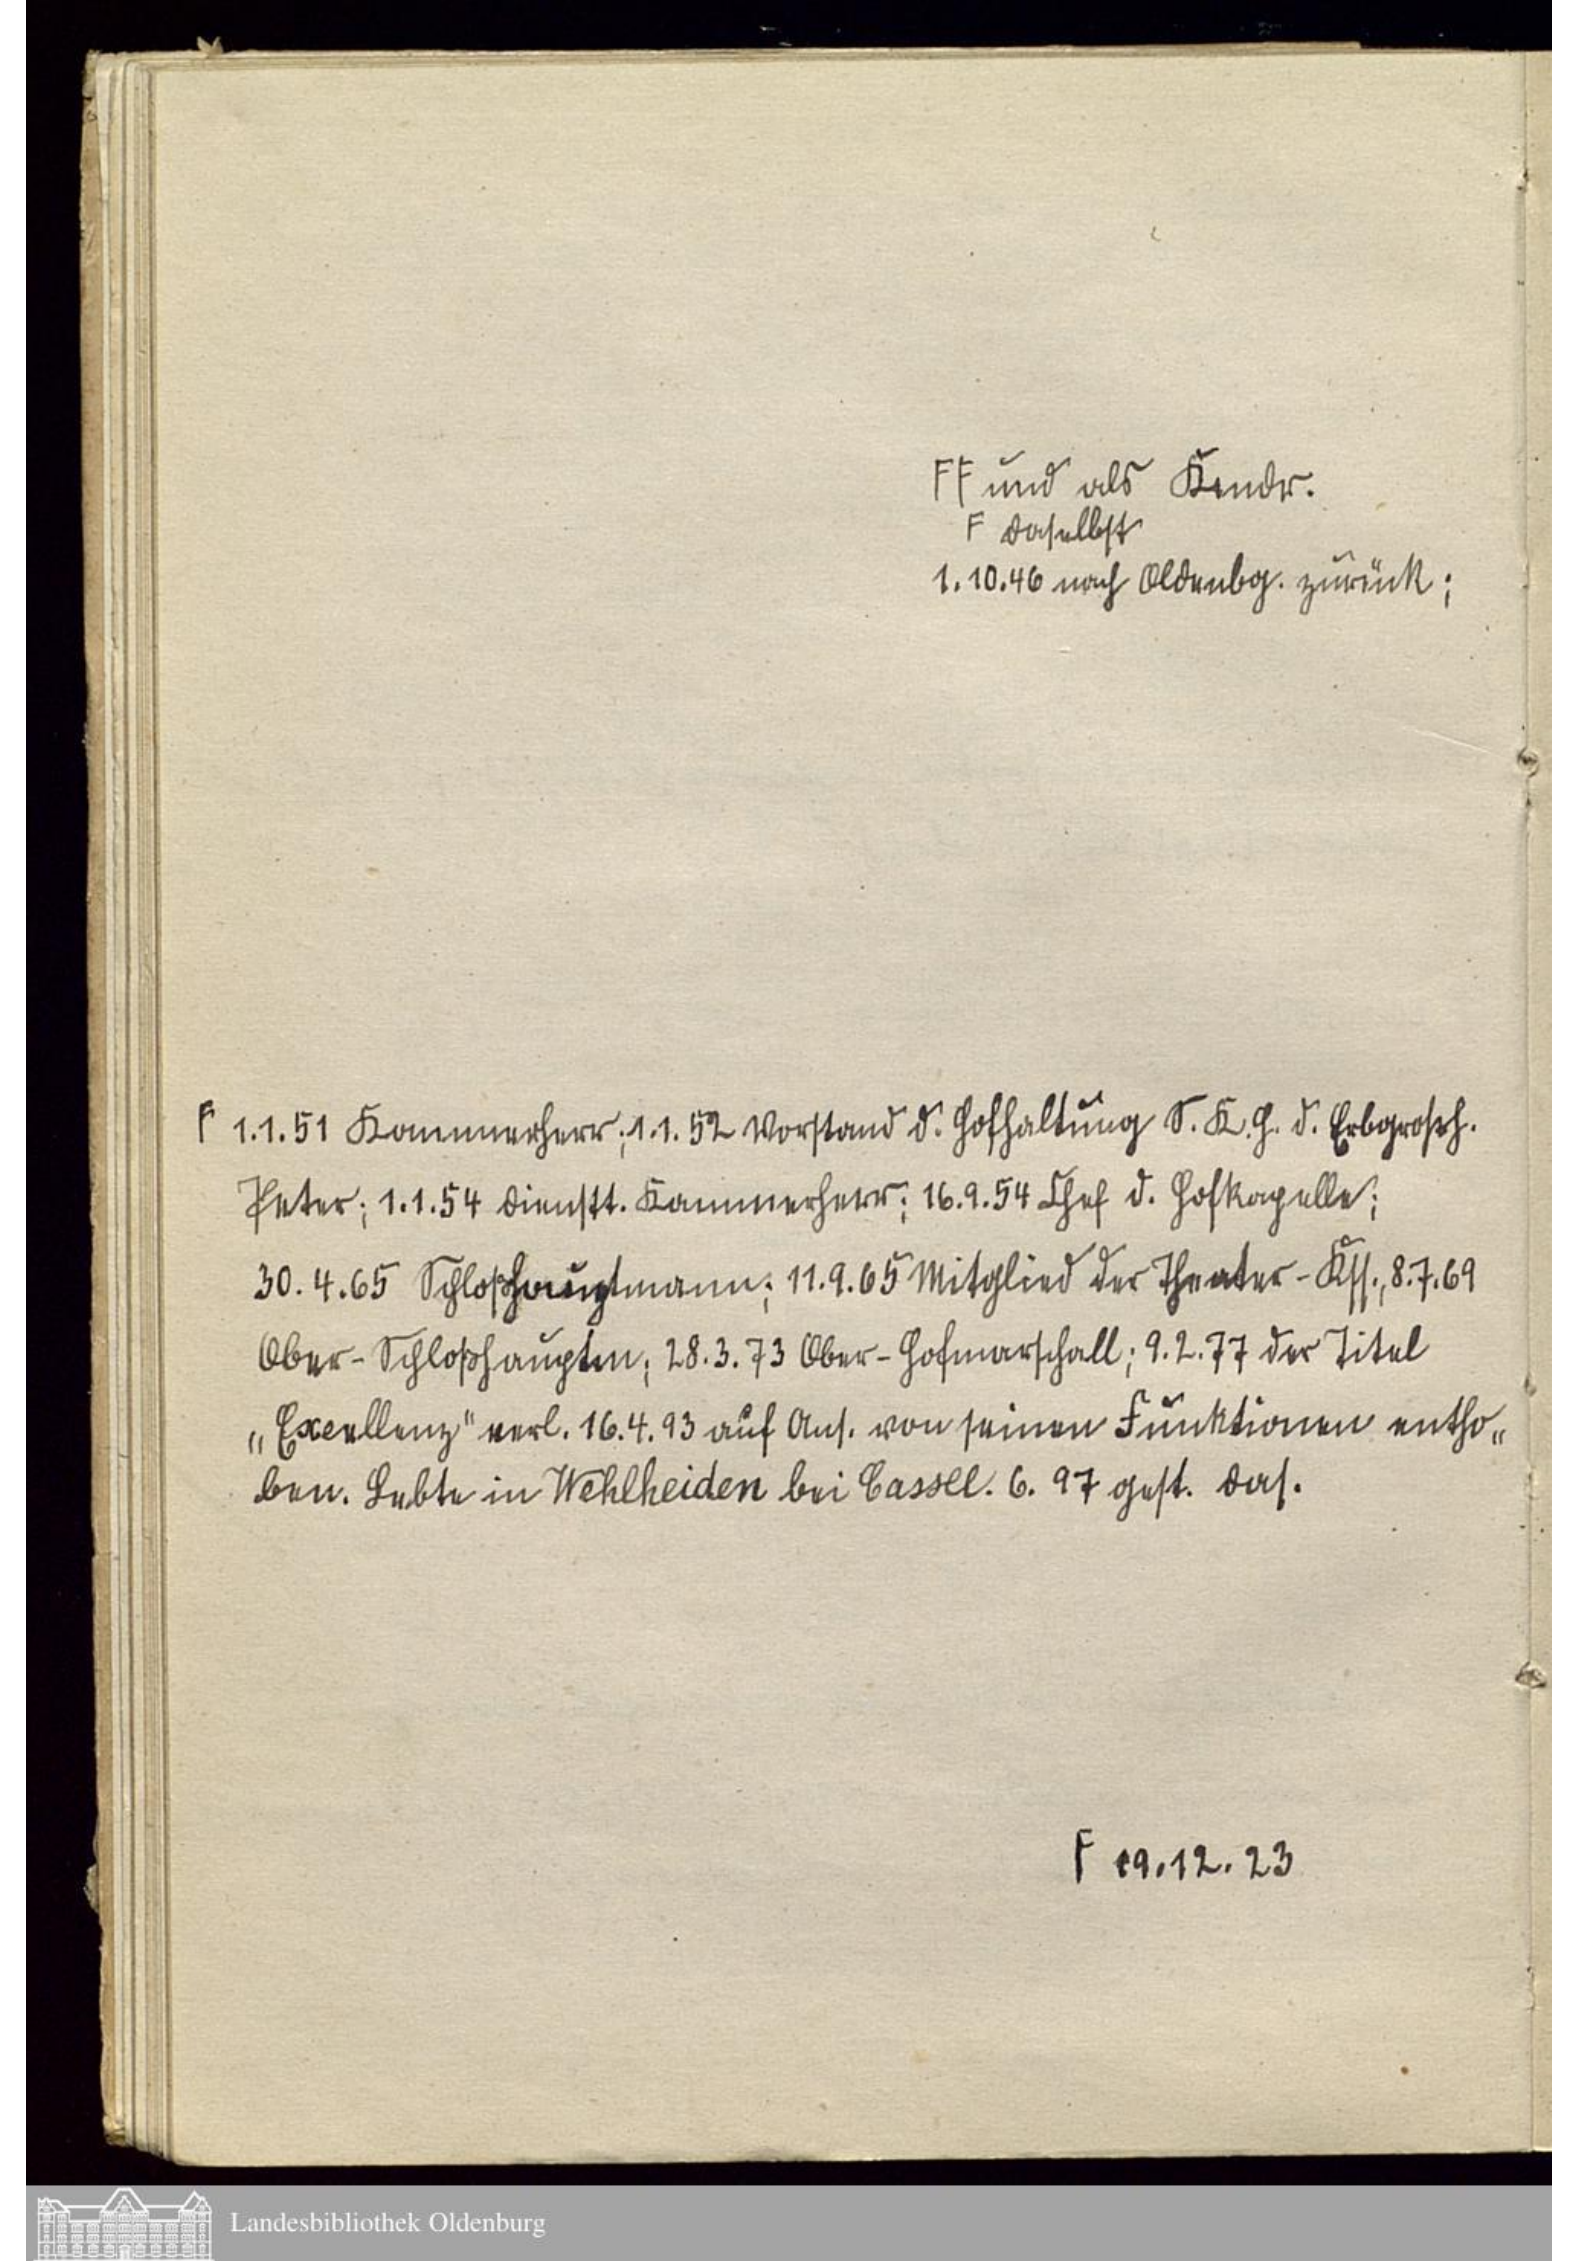 FF und als Kmdr.
F daselbst
1.10.46 nach Oldenbg. zurück;
F 1.1.51 Kammerherr; 1.1.52 Vorstand d. Hofhaltung S. K. H. d. Erbgroßh.
Peter; 1.1.54 dienstt. Kammerherr; 16.9.54 Chef d. Hofkapelle;
30.4.65 Schloßhauptmann; 11.9.65 Mitglied der Theater-Kss., 8.7.69
Ober-Schloßhauptm; 28.3.73 Ober-Hofmarschall; 9.2.77 der Titel
„Excellenz" verl. 16.4.93 auf Ans. von seinen Funktionen entho„
ben. Lebte in Wehlheiden bei Cassel. 6. 97 gest. das.
F 19.12.23
Landesbibliothek Oldenburg